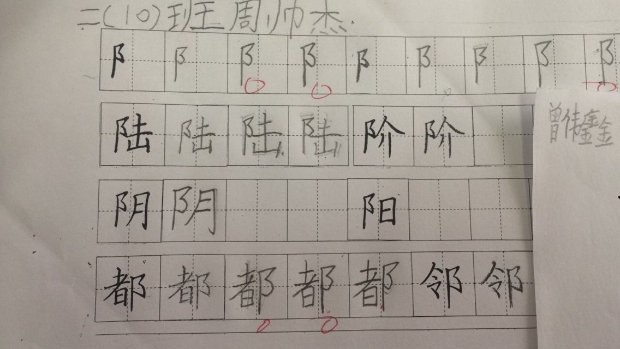 二(10)班周帅杰.
阝阝阝阝阝阝阝阝阝
陆陆陆陆阶阶
曾伟鑫金
阴阴阳
都都都都都邻邻